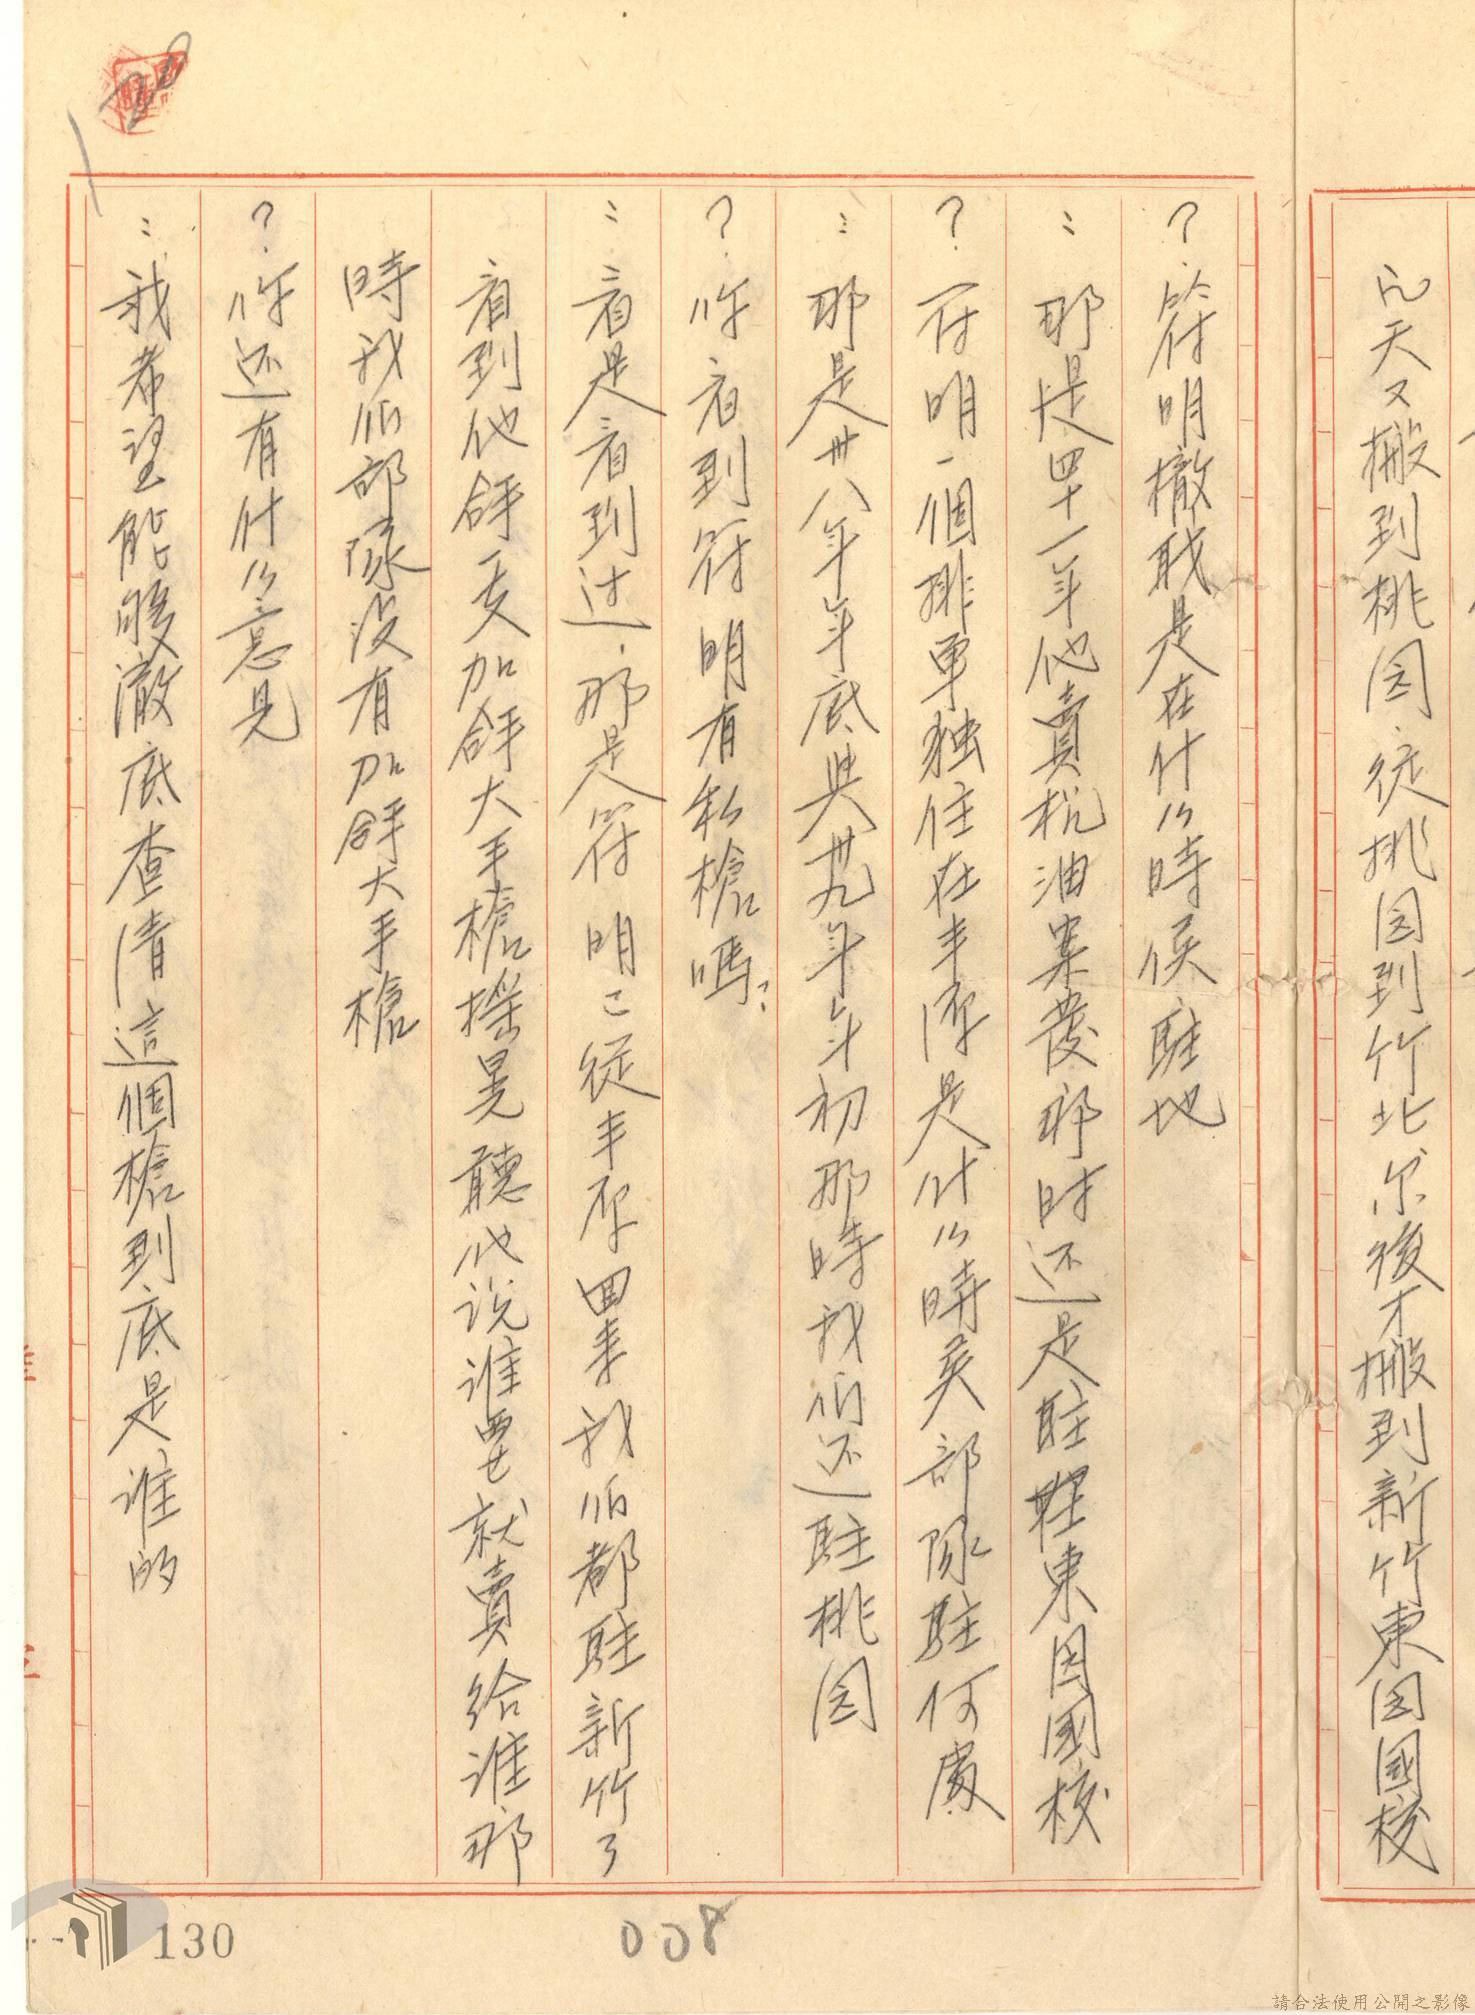 天又搬到桃园、從桃园到竹北尔後才搬到新竹東园國校
？符明撤職是在什么時候駐地
：那是四十一年他賣枧油案發那时还是駐東园國校
？符明一個排单独住在丰原是什么時候部隊駐何處
：那是卅八年年底與卅九年年初那時我们还駐桃园
？你看到符明有私槍嗎？
：看是看到过、那是符明已從丰原回來我们都駐新竹了
看到他拿一支加拿大手槍搖晃聽他说谁要就賣给谁那
時我们部隊沒有加拿大手槍
？你还有什么意見
：我希望能够澈底查清這個槍到底是谁的
130
008
請合法使用公開之影像